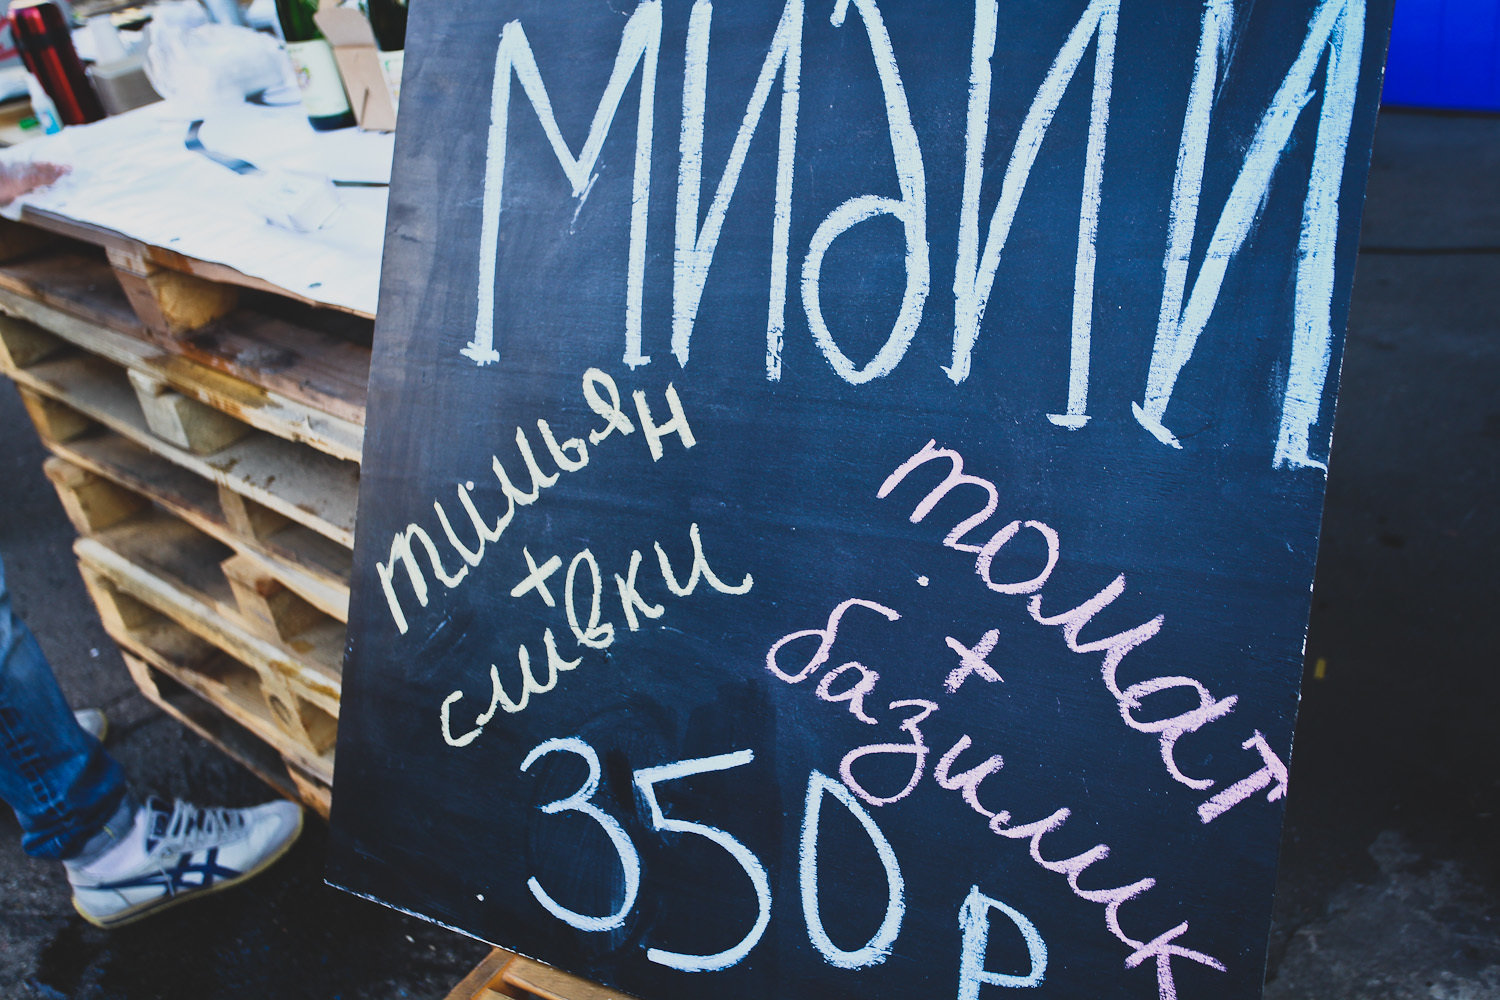 МИДИИ
тимьян
+
сливки
томат
+
базилик
350 р